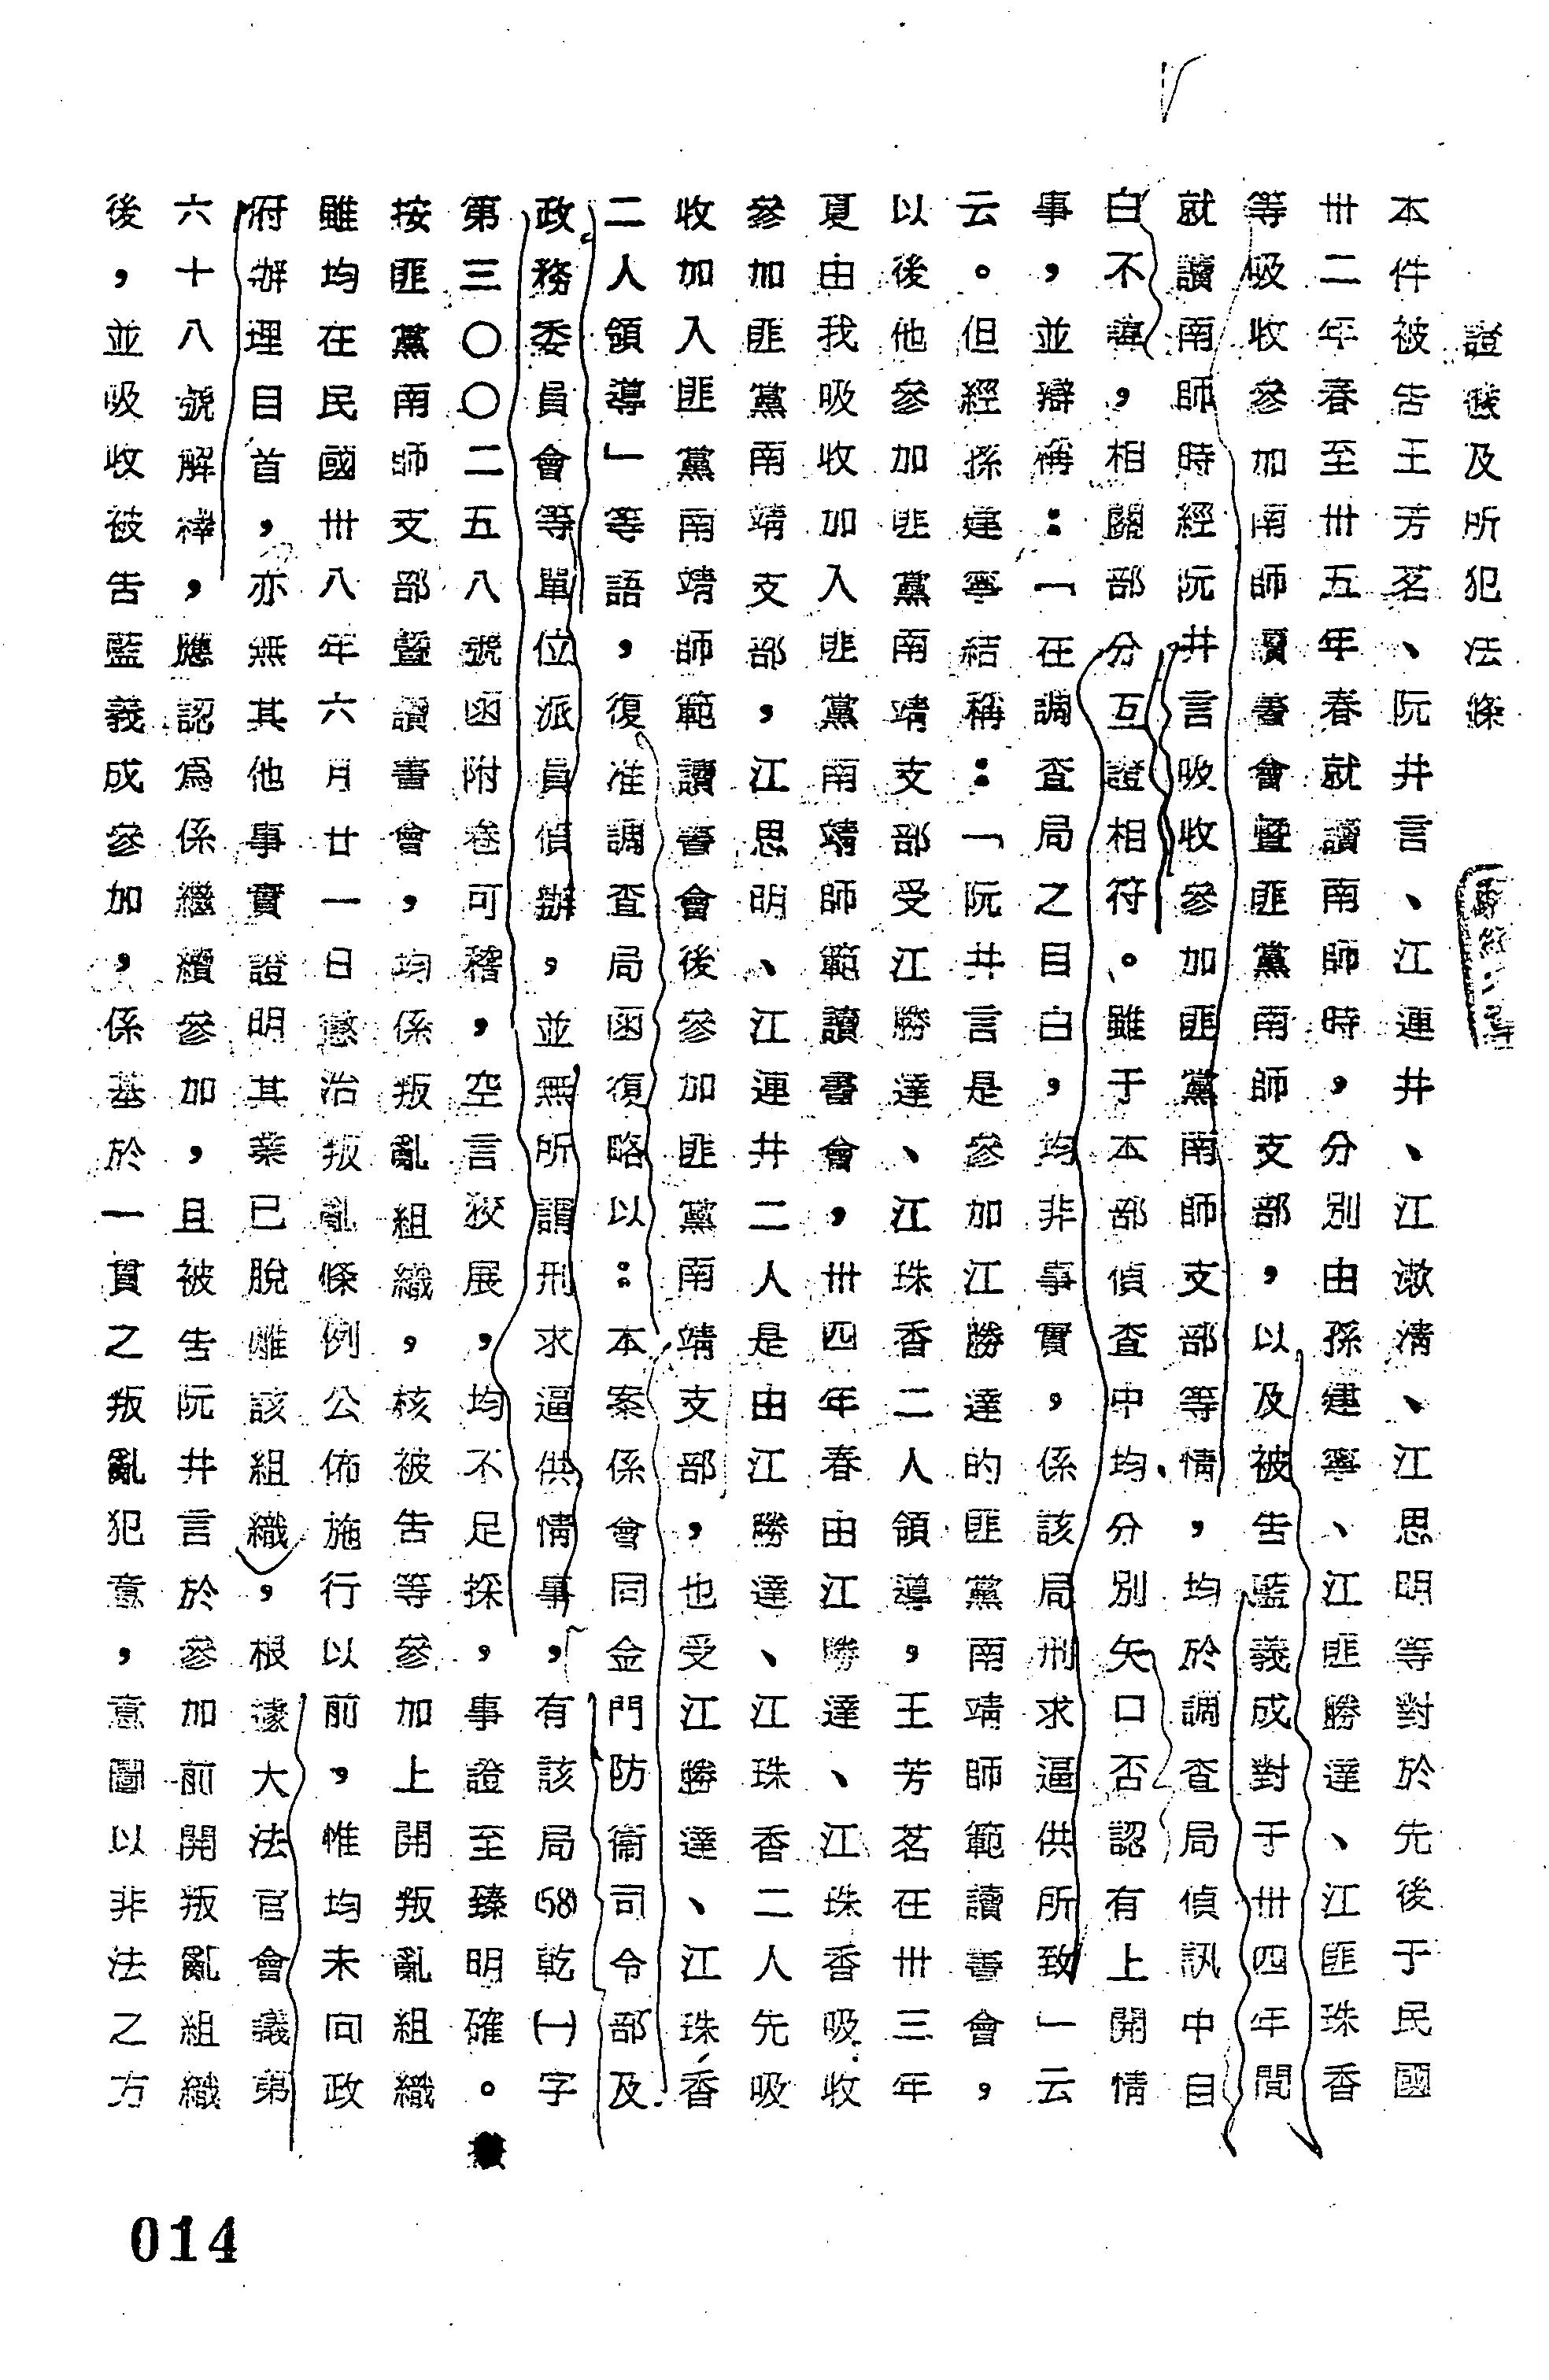 證據及所犯法條
本件被告王芳茗、阮井言、江連井、江漱清、江思明等對於先後于民國
卅二年春至卅五年春就讀南師時，分別由孫建寧、江匪勝達、江匪珠香
等吸收參加南師讀書會暨匪黨南師支部，以及被告藍義成對于卅四年間
就讀南師時經阮井言吸收參加匪黨南師支部等情，均於調查局偵訊中自
白不諱，相關部分互證相符。雖于本部偵查中均分別矢口否認有上開情
事，並辯稱：「在調查局之自白，均非事實，係該局刑求逼供所致」云
云。但經孫建寧結稱：「阮井言是參加江勝達的匪黨南靖師範讀書會，
以後他參加匪黨南靖支部受江勝達、江珠香二人領導，王芳茗在卅三年
夏由我吸收加入匪黨南靖師範讀書會，卅四年春由江勝達、江珠香吸收
參加匪黨南靖支部，江思明、江連井二人是由江勝達、江珠香二人先吸
收加入匪黨南靖師範讀書會後參加匪黨南靖支部，也受江勝達、江珠香
二人領導」等語，復准調查局函復略以：本案係會同金門防衞司令部及
政務委員會等單位派員偵辦，並無所謂刑求逼供情事，有該局(58)乾(一)字
第三〇〇二五八號函附卷可稽，空言狡展，均不足採，事證至臻明確。
按匪黨南師支部暨讀書會，均係叛亂組織，核被告等參加上開叛亂組織
雖均在民國卅八年六月廿一日懲治叛亂條例公佈施行以前，惟均未向政
府辦理自首，亦無其他事實證明其業已脫離該組織，根據大法官會議第
六十八號解釋，應認為係繼續參加，且被告阮井言於參加前開叛亂組織
後，並吸收被告藍義成參加，係基於一貫之叛亂犯意，意圖以非法之方
014